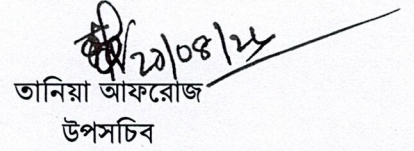 20/08/25
তানিয়া আফরোজ
উপসচিব